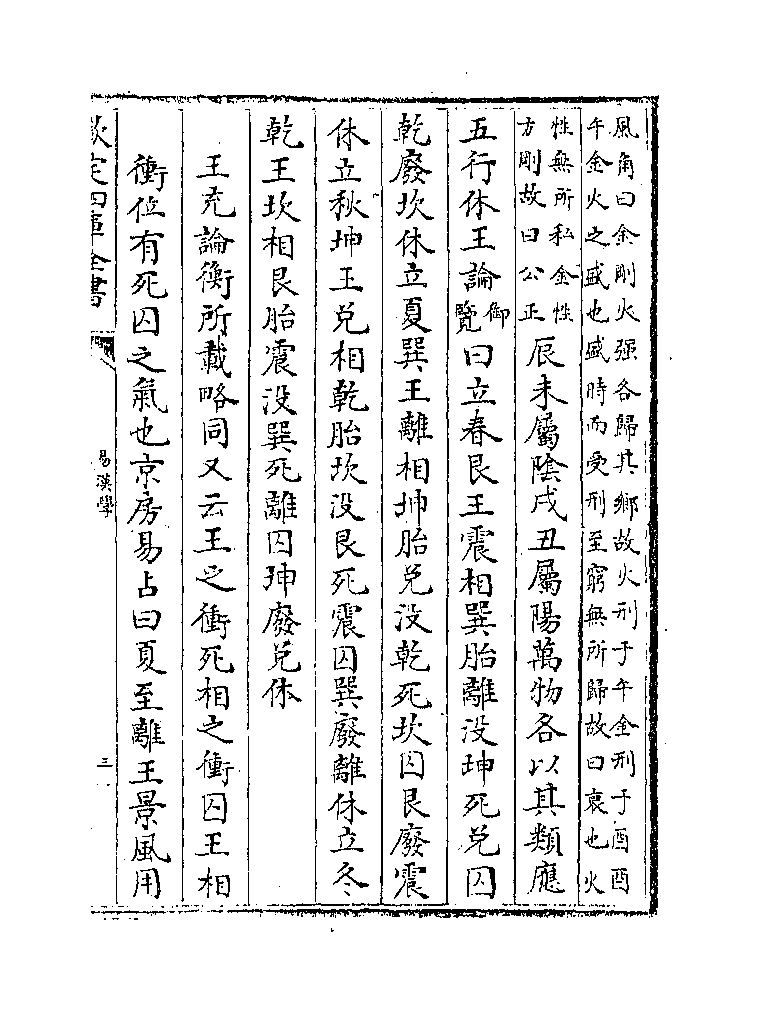 風角曰金剛火强各歸其鄉故火刑于午金刑于酉酉
午金火之盛也盛時而受刑至窮無所歸故曰哀也火
性無所私金性
方剛故曰公正
辰未屬陰戌丑屬陽萬物各以其類應
五行休王論御
覽曰立春艮王震相巽胎離没坤死兑囚
乾廢坎休立夏巽王離相坤胎兑没乾死坎囚艮廢震
休立秋坤王兑相乾胎坎没艮死震囚巽廢離休立冬
乾王坎相艮胎震没巽死離囚坤廢兑休
王充論衡所載略同又云王之衝死相之衝囚王相
衝位有死囚之氣也京房易占曰夏至離王景風用
欽定四庫全書
易漢學
三